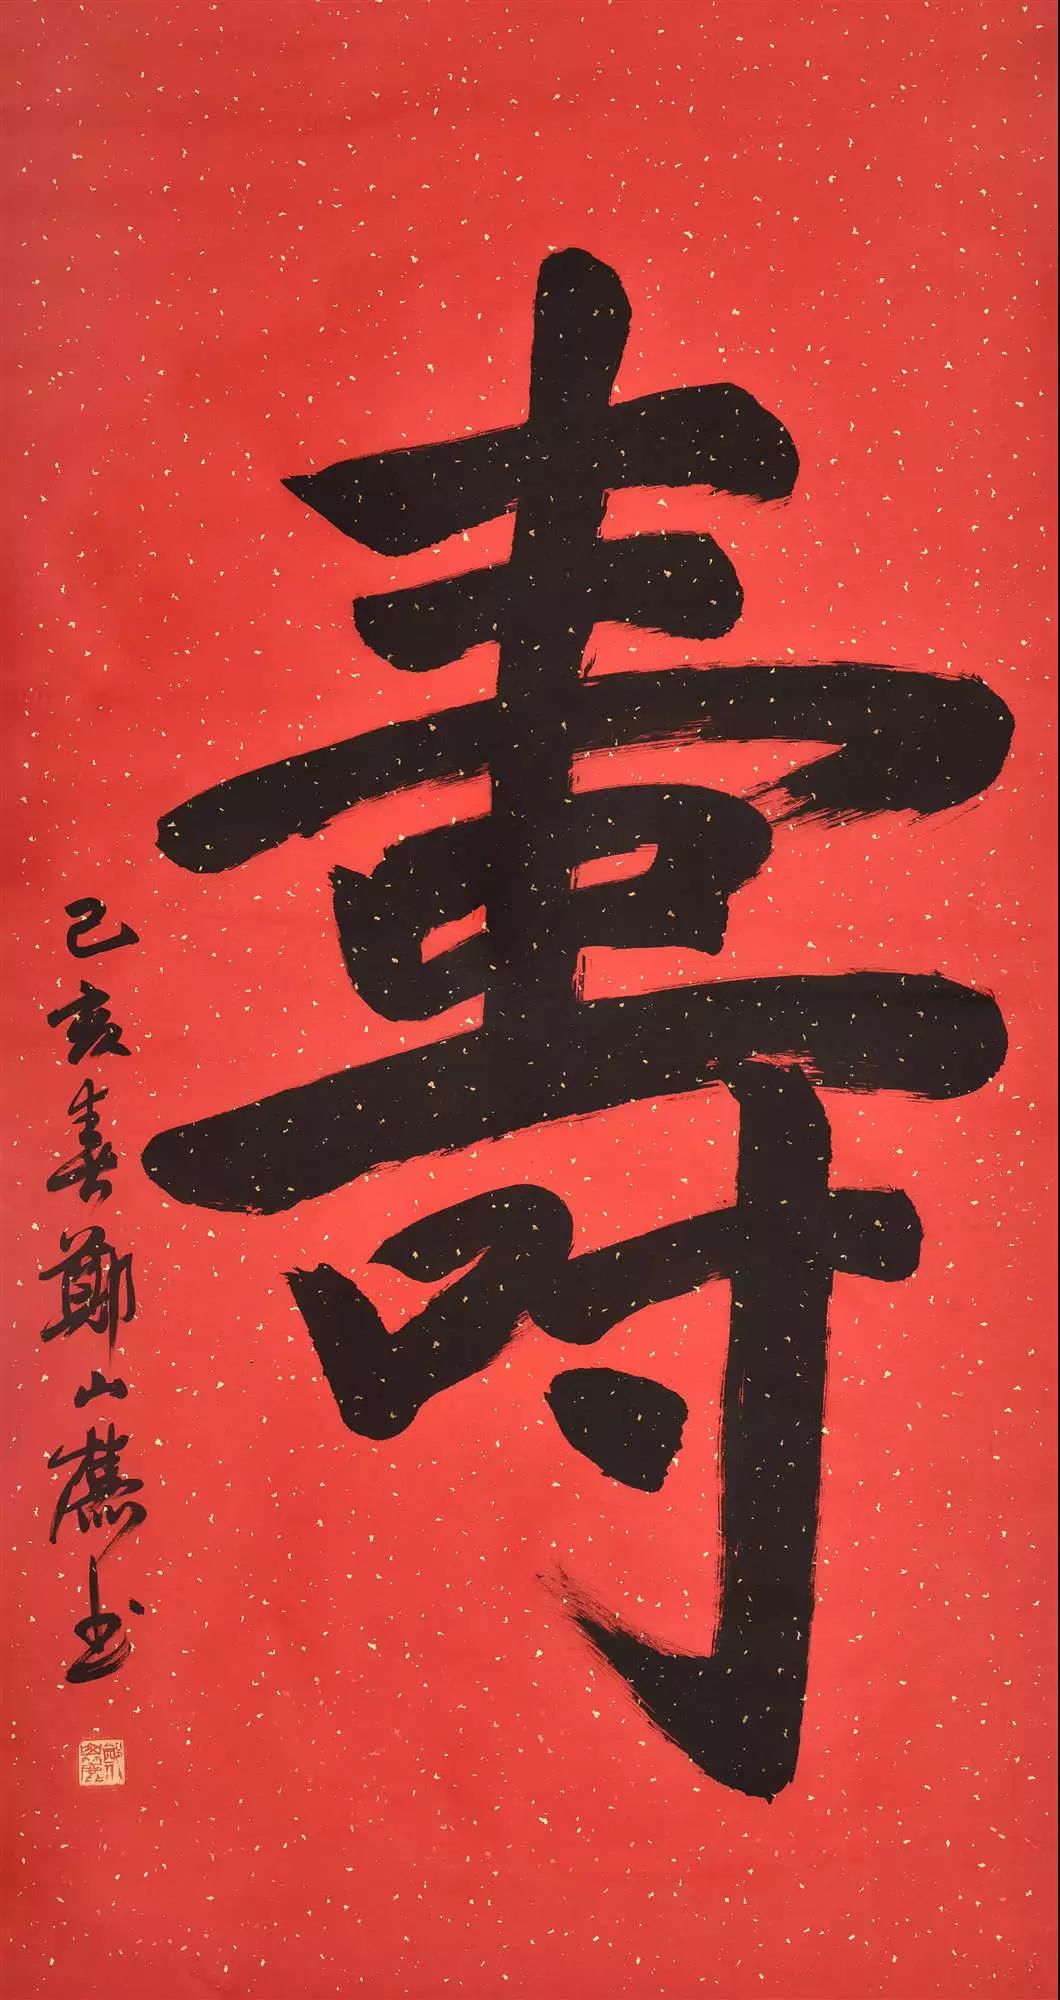 壽
己亥春鄭山麓書